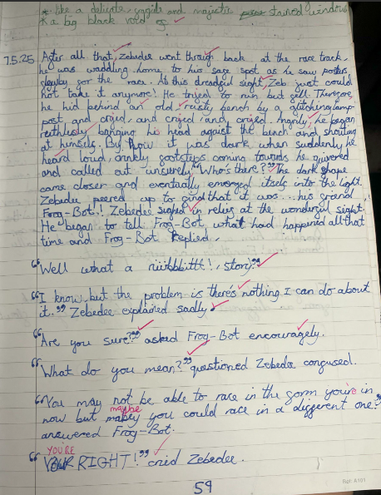 * like a delicate, and majestic stained window
* a big black void of
15.25 After all that, Zebedee went through back at the race track,
he was waddling home to his safe spot as he saw posters
for the race. At this dreadful sight, Zeb just could
not take it anymore! He tried to run but fell. Therefore
he hid behind an old, rusty bench by a glitching lamp
post and cried, and cried and cried. Angrily, he began
ruthlessly banging his head against the bench and shouting
at himself. By now it was dark when suddenly he
heard loud, clinkly footsteps coming towards he quivered
and called out unsurely "Who's there?" The dark shape
came closer and eventually emerged itself into the light.
Zebedee peered up to find that it was... his friend,
Frog-Bot! Zebedee sighed in relief at the wonderful sight.
He began to tell Frog-Bot what had happened all that
time and Frog-Bot replied,
"Well what a riiibbittt!, story"
"I know, but the problem is there's nothing I can do about
it." Zebedee explained sadly.
"Are you sure?" asked Frog-Bot encouragely.
"What do you mean?" questioned Zebedee confused.
"You may not be able to race in the form you're in
now but maybe you could race in a different one?"
answered Frog-Bot.
YOU'RE
" RIGHT!" cried Zebedee.
59